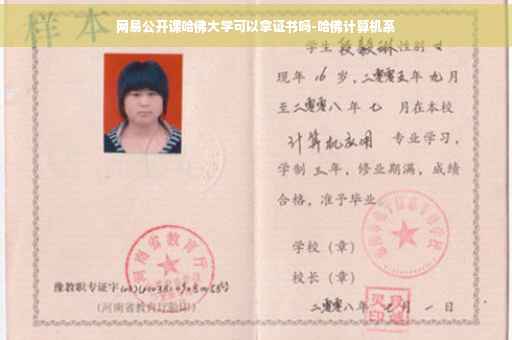 网易公开课哈佛大学可以拿证书吗-哈佛计算机系
样本
河南省教育厅
豫教职专证字
(河南省教育厅验印)
学生段毅琳性别女
现年16岁,二零零五年九月
至二零零八年七月在本校
计算机应用 专业学习,
学制三年,修业期满,成绩
合格,准予毕业。
学校(章)
校长(章)
二零零八年七月一日